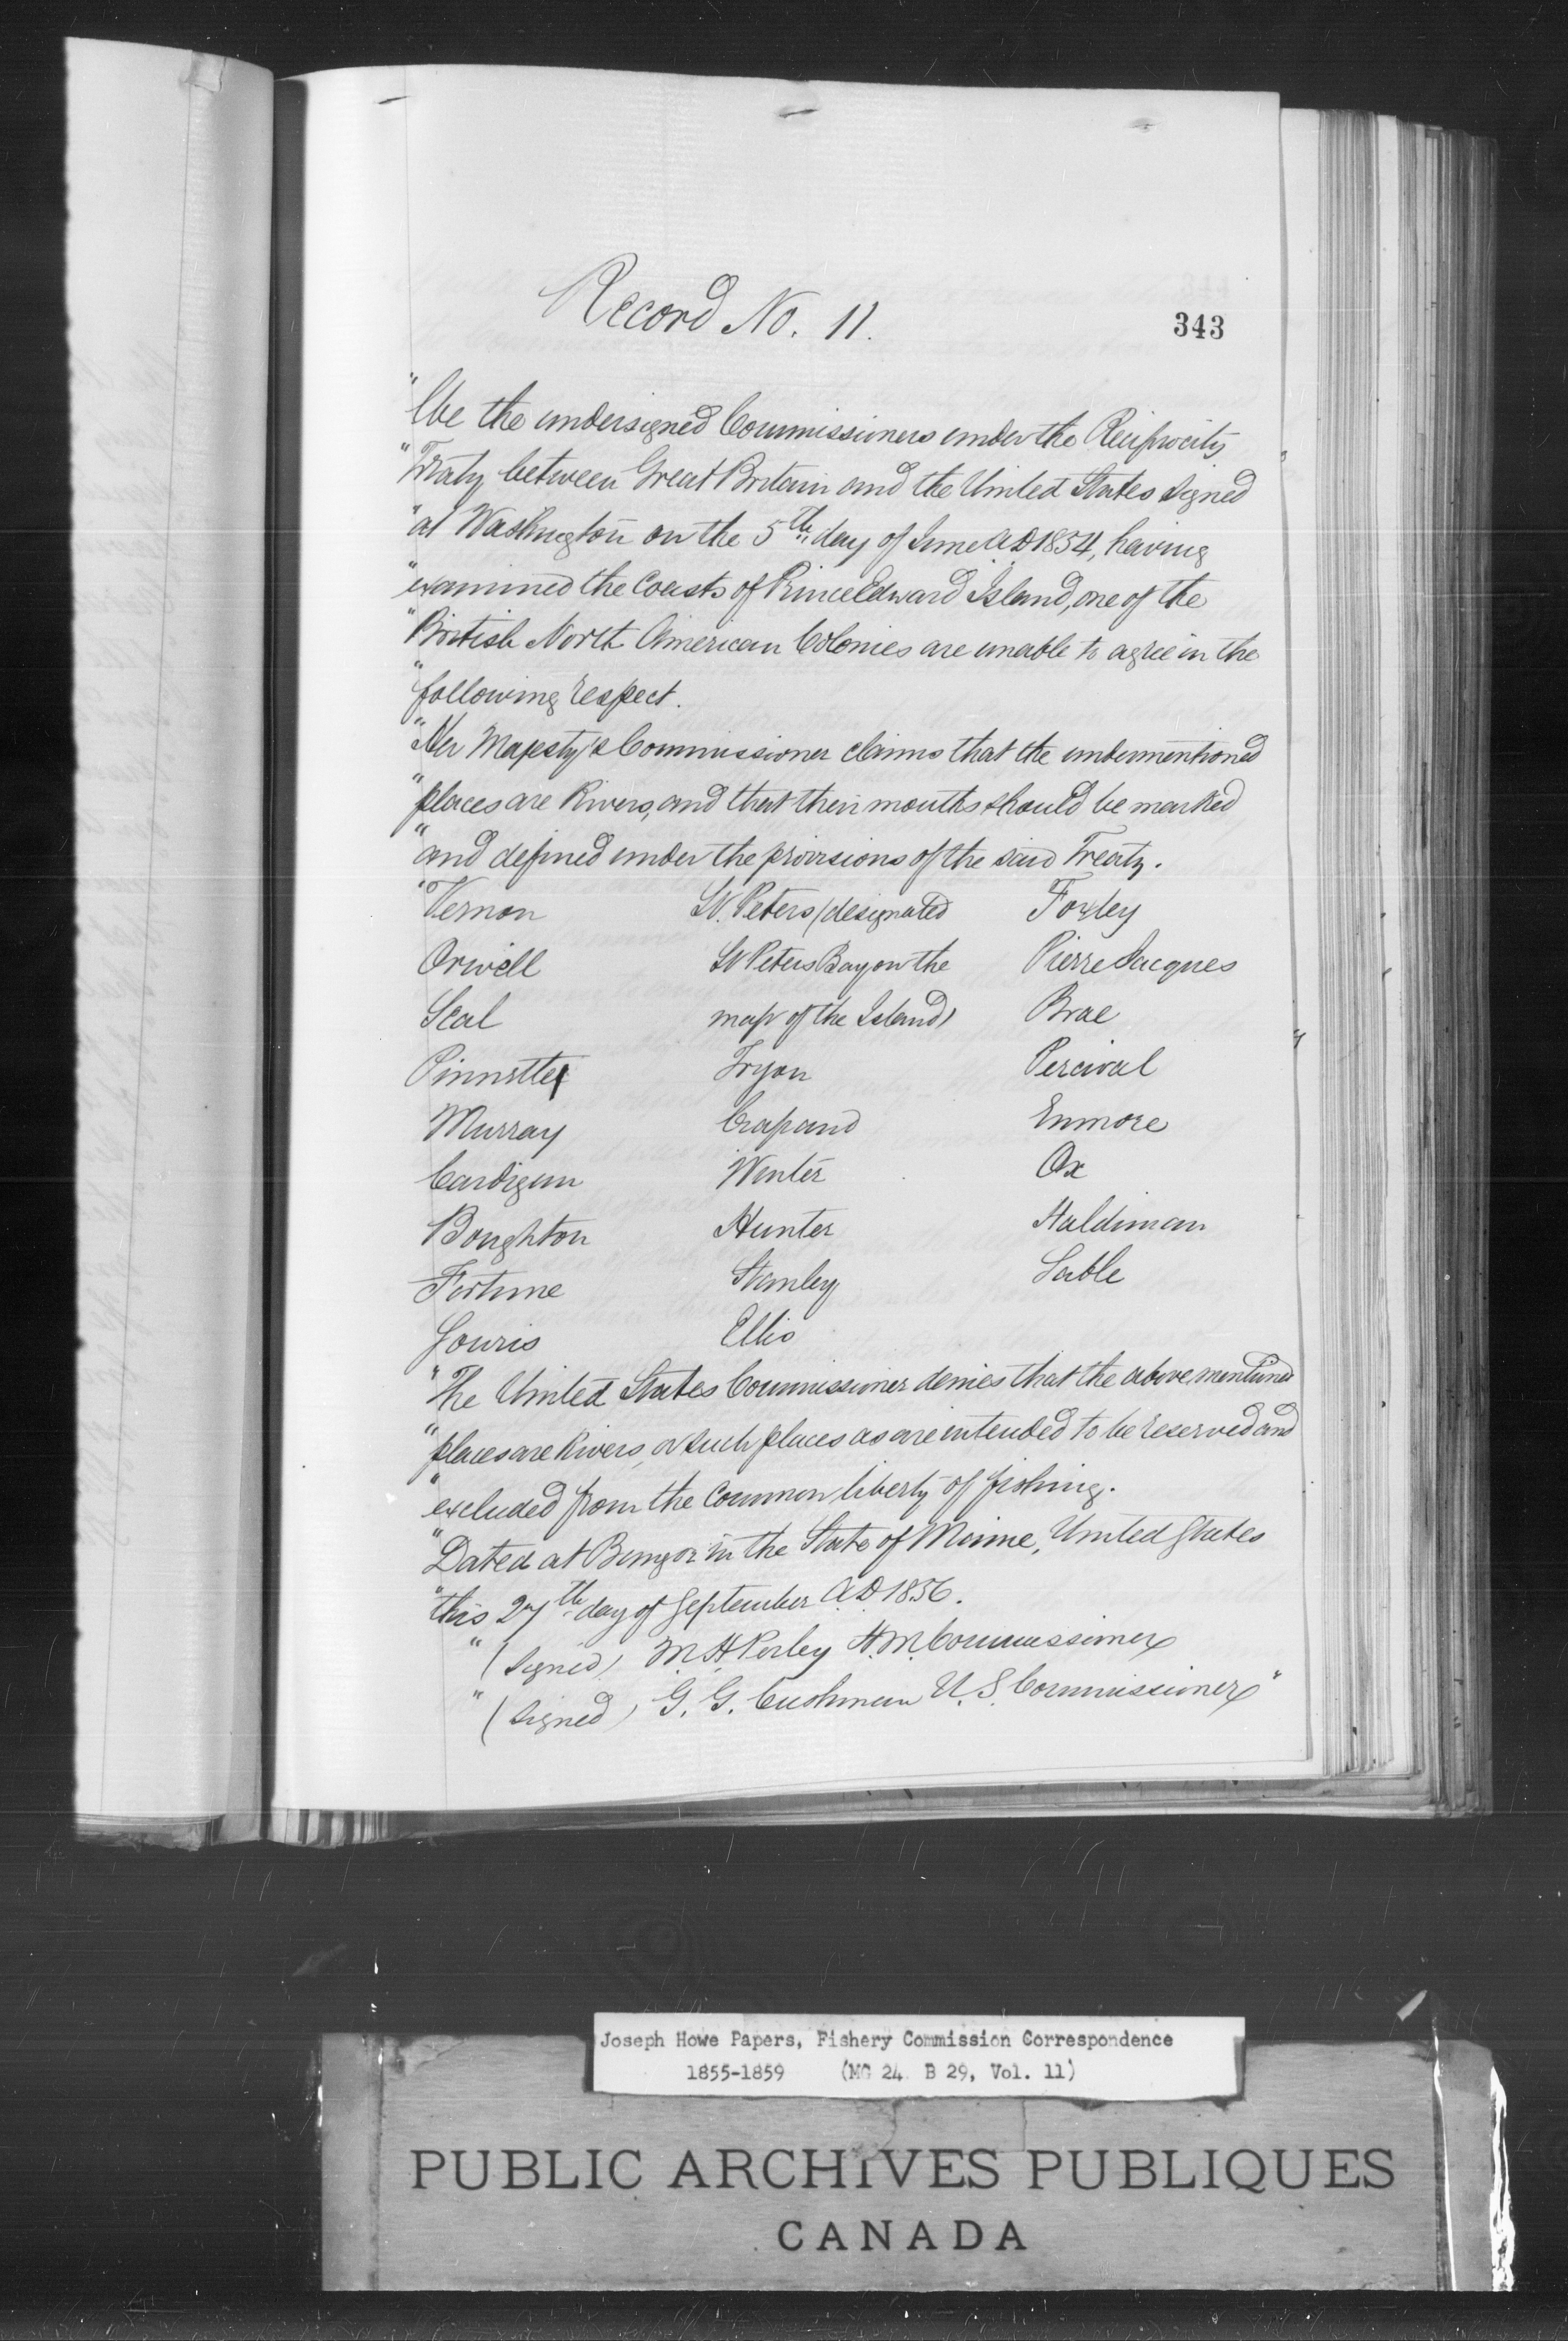 Record No. 11.
343
"We the undersigned Commissioners under the Reciprocity
"Treaty between Great Britain and the United States signed
"at Washington on the 5th day of June A.D 1854, having
"examined the Coasts of Prince Edward Island, one of the
"British North American Colonies are unable to agree in the
"following respect.
"Her Majesty's Commissioner claims that the undermentioned
"places are Rivers, and that their mouths should be marked
"and defined under the provisions of the said Treaty.
"Vernon St. Peters (designated Foxley
Orwell St Peters Bay on the Pierre Jacques
Seal map of the Island) Brae
Pinnette Tryon Percival
Murray Crapaud Enmore
Cardigan Winter Ox
Boughton Hunter Haldiman
Fortune Stanley Sable
Souris Ellis
"The United States Commissioner denies that the above mentioned
"places are Rivers, or such places as are intended to be reserved and
"excluded from the common liberty of fishing.
"Dated at Bangor in the State of Maine, United States
"this 27th day of September A.D 1856.
"(Signed) M. H Perley H.M. Commissioner
"(Signed) G. G. Cushman U.S. Commissioner"
Joseph Howe Papers, Fishery Commission Correspondence
1855-1859 (MG 24 B 29, Vol. 11)
PUBLIC ARCHIVES PUBLIQUES
CANADA